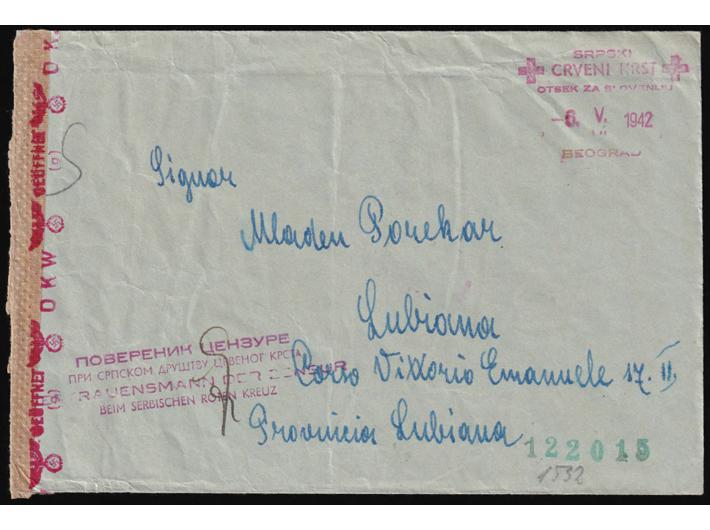 SRPSKI
CRVENI KRST
OTSEK ZA SLOVENIJU
-6. V. 1942
BEOGRAD
Signor
Mladen Porekar
Lubiana
Corso Vittorio Emanuele 17. II.
Provincia Lubiana
ПОВЕРЕНИК ЦЕНЗУРЕ
ПРИ СРПСКОМ ДРУШТВУ ЦРВЕНОГ КРСТА
VERTRAUENSMANN DER ZENSUR
BEIM SERBISCHEN ROTEN KREUZ
122015
1532
OKW
GEÖFFNET
(a)
OKW
GEÖFFNET
(a)